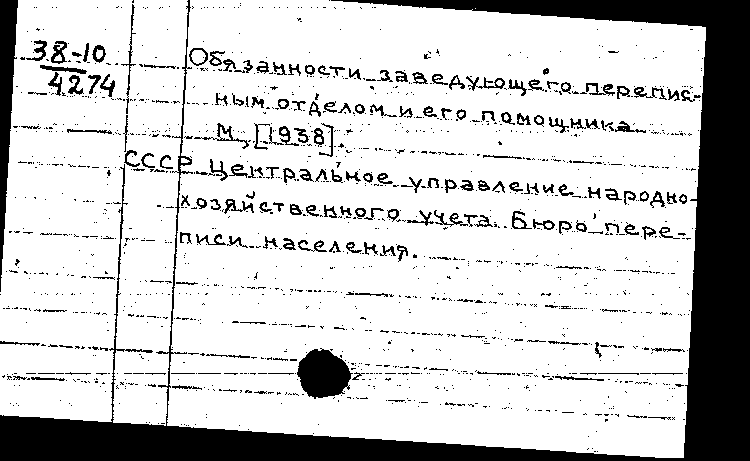 38-10
4274
Обязанности заведующего перепис-
ным отделом и его помощника
М, [1938].
СССР Центральное управление народно-
хозяйственного учета. Бюро пере-
писи населения.